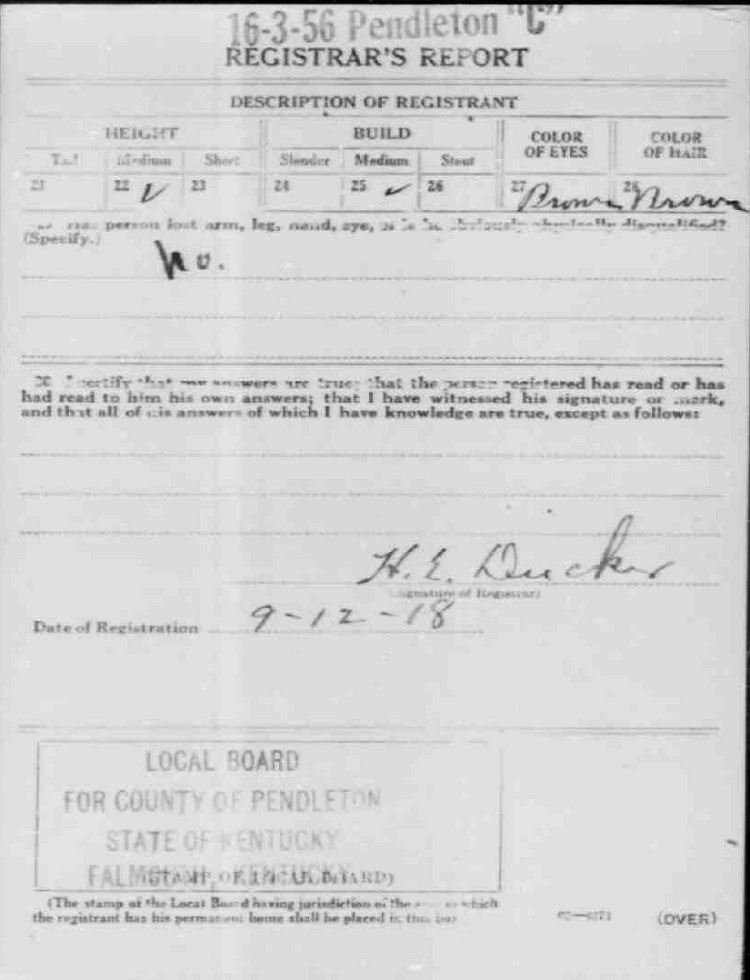 16-3-56 Pendleton "C"
REGISTRAR'S REPORT
DESCRIPTION OF REGISTRANT
HEIGHT BUILD COLOR OF EYES COLOR OF HAIR
Tall Medium Short Slender Medium Stout
21 22 ✓ 23 24 25 ✓ 26 27 Brown 28 Brown
person lost arm, leg, hand, eye, obviously physically disqualified?
(Specify.)
No.
30 I certify that my answers are true; that the person registered has read or has
had read to him his own answers; that I have witnessed his signature or mark,
and that all of his answers of which I have knowledge are true, except as follows:
H. E. Ducker
(Signature of Registrar)
Date of Registration 9-12-18
LOCAL BOARD
FOR COUNTY OF PENDLETON
STATE OF KENTUCKY
FALMOUTH, KENTUCKY
(STAMP OF LOCAL BOARD)
(The stamp of the Local Board having jurisdiction of the area in which
the registrant has his permanent home shall be placed in this box
(OVER)